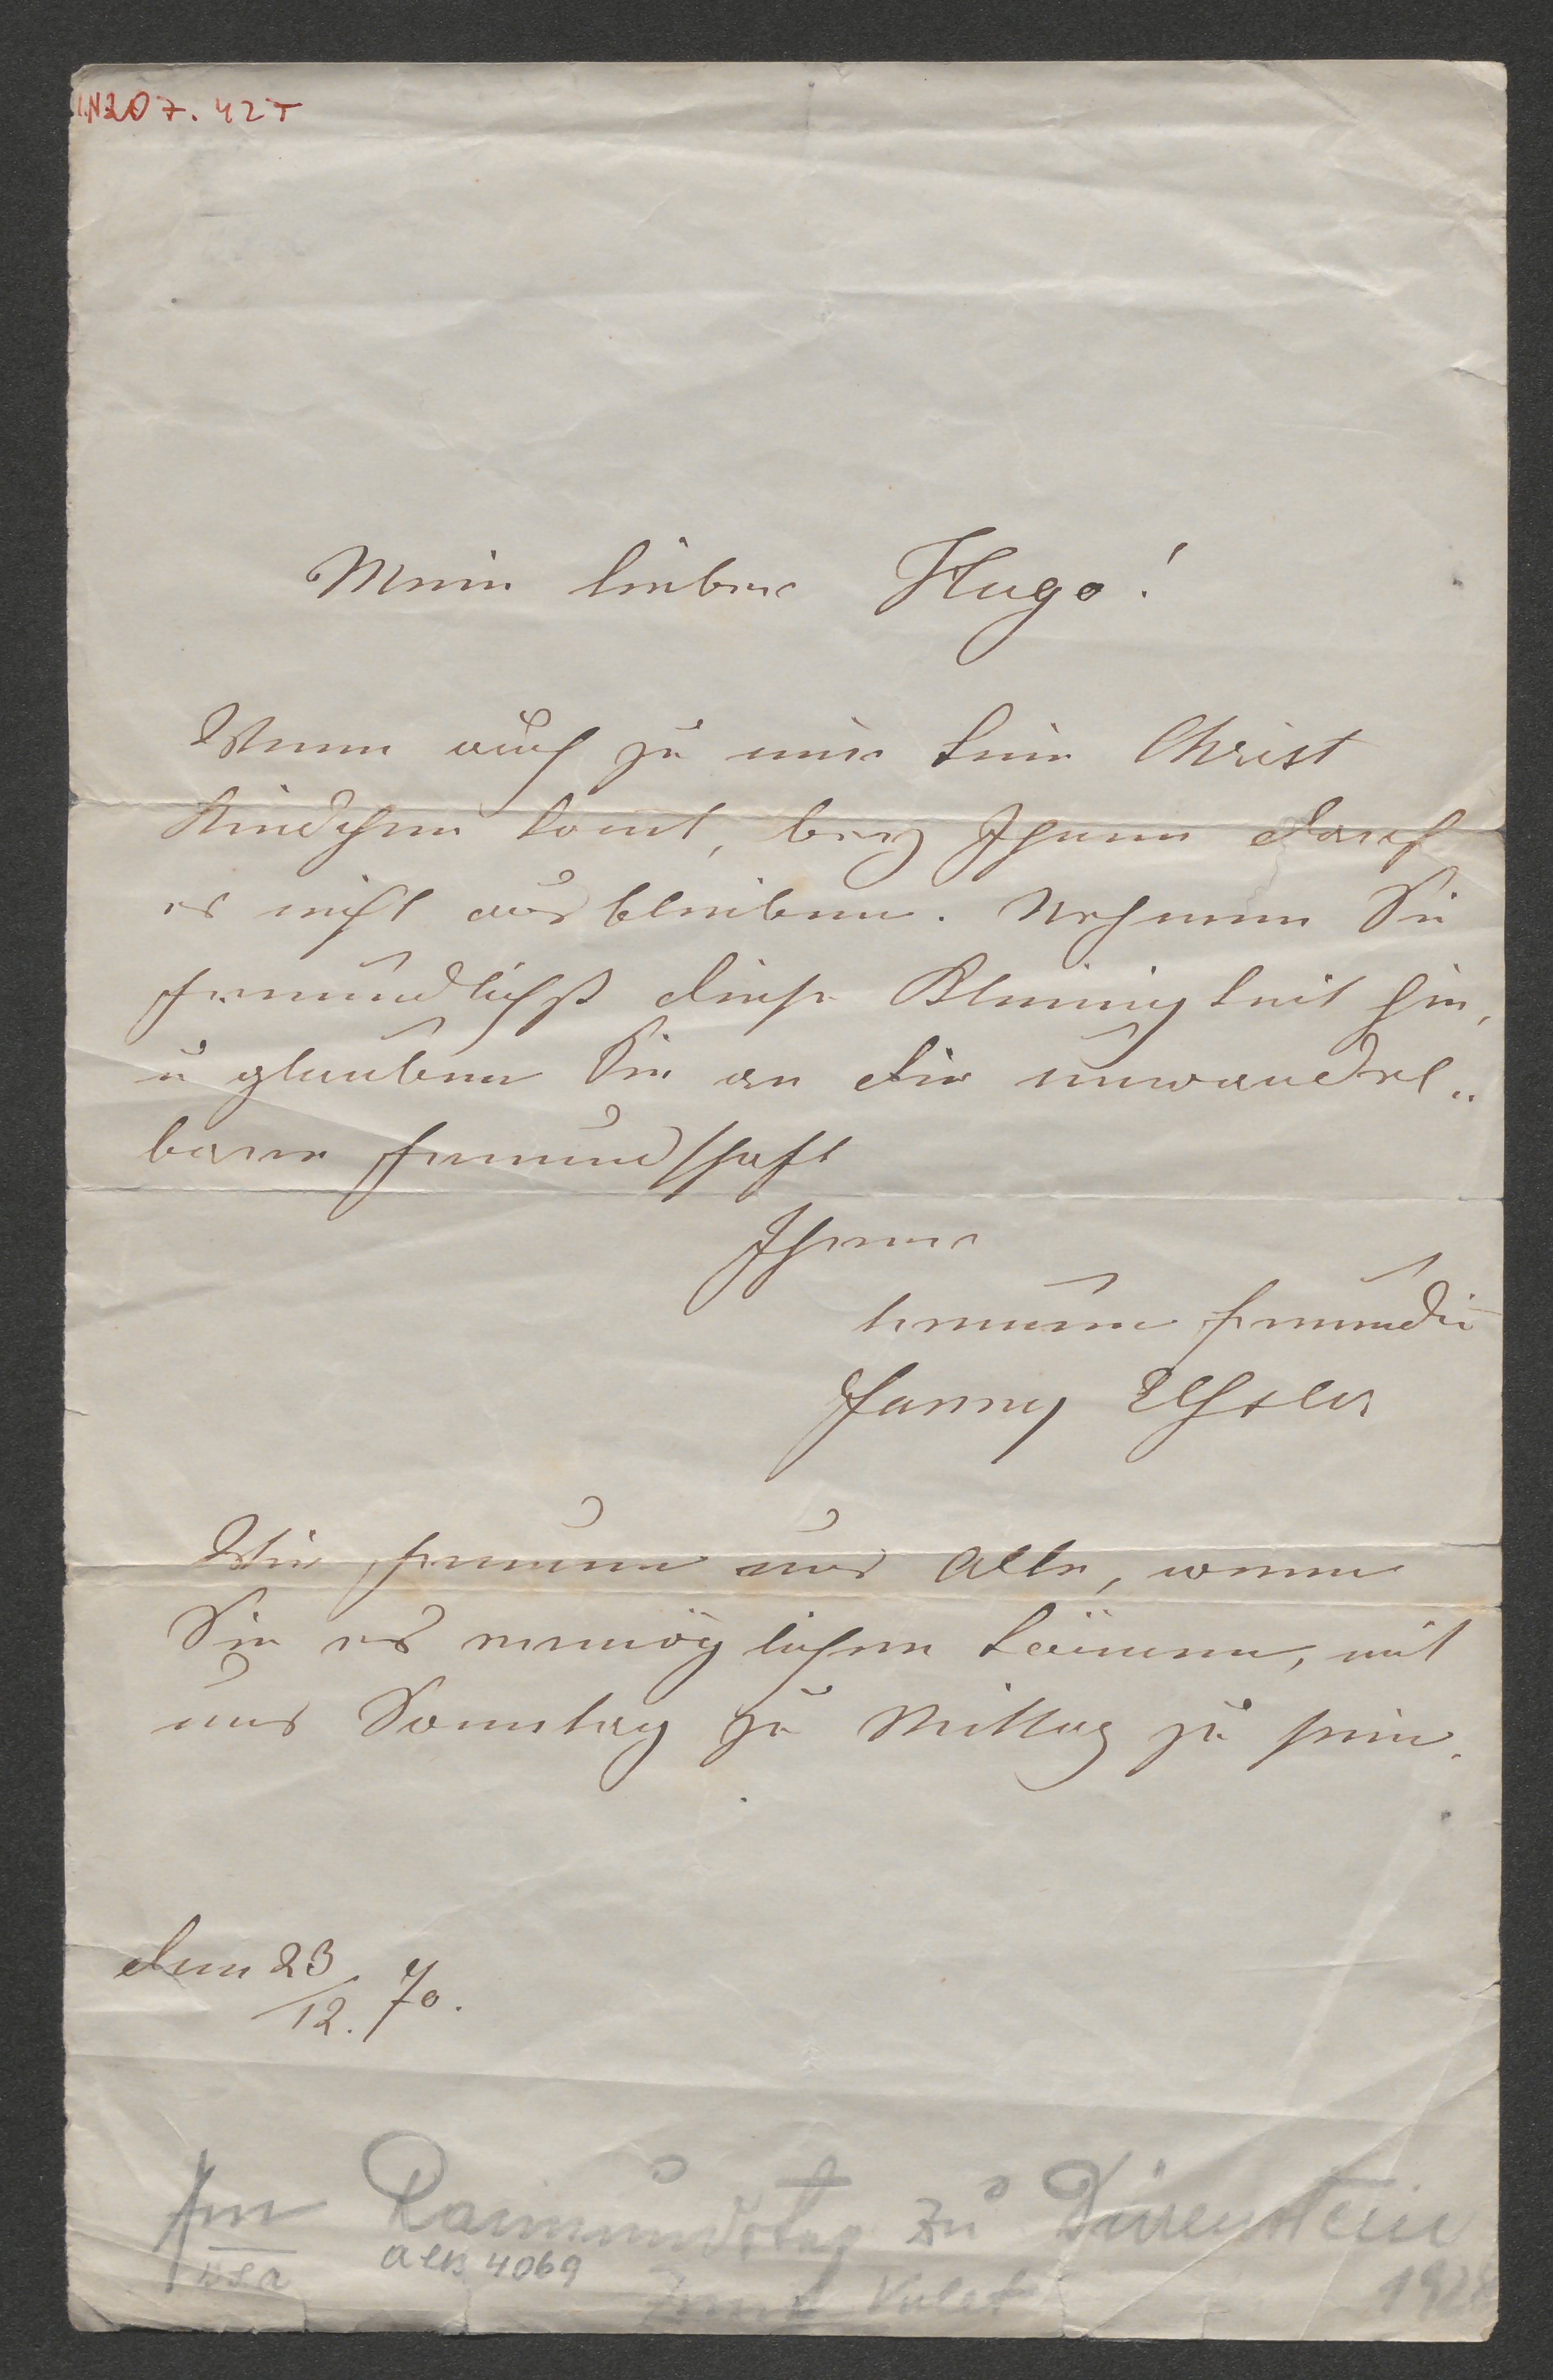 I.N 207.427
Mein lieber Hugo!
Wenn auch zu mir kein Christ
Kindchen komt, bey Ihnen darf
es nicht ausbleiben. Nehmen Sie
freundlichst diese Kleinigkeit hin,
u glauben Sie an die unwandel„
bare Freundschaft
Ihrer
treuen Freundin
Fanny Elßler
Wir freuen uns Alle, wenn
Sie es ermöglichen können, mit
uns Sonntag zu Mittag zu sein.
den 23/12. 70.
Am Raimundstag zu Dürrenstein
AEB 4069
1928